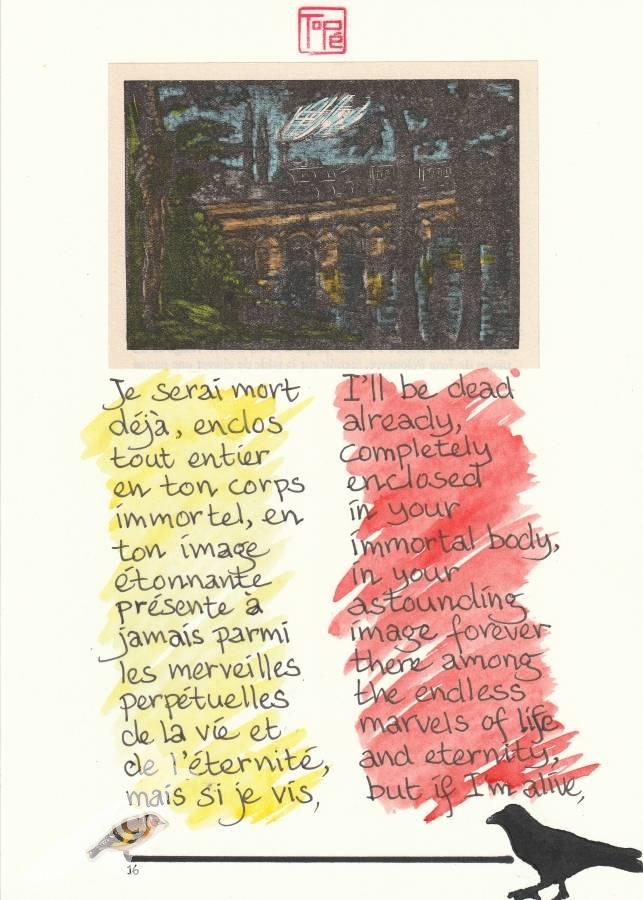 TOPÉ
Je serai mort
déjà, enclos
tout entier
en ton corps
immortel, en
ton image
étonnante
présente à
jamais parmi
les merveilles
perpétuelles
de la vie et
de l'éternité,
mais si je vis,
I'll be dead
already,
completely
enclosed
in your
immortal body,
in your
astounding
image forever
there among
the endless
marvels of life
and eternity,
but if I'm alive,
16